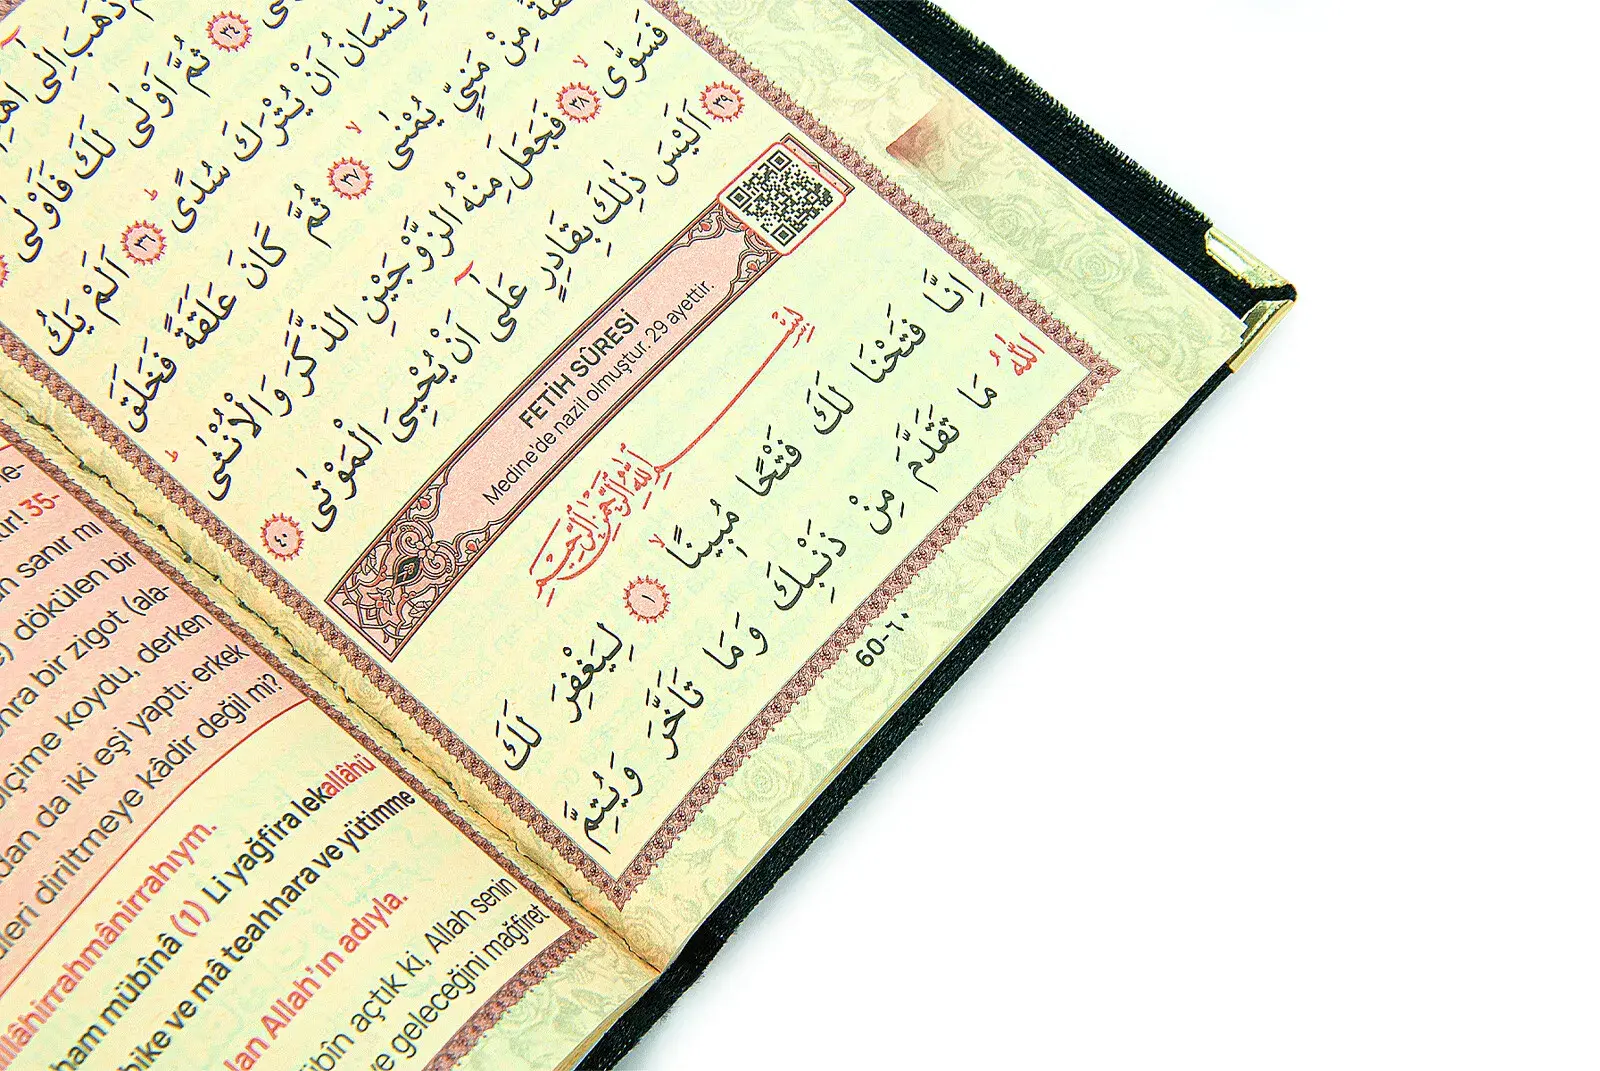 ذَهَبَ اِلٰٓى
٣٤ ثُمَّ اَوْلٰى لَكَ فَاَوْلٰى
نْسَانُ اَنْ يُتْرَكَ سُدًى ٣٦ اَلَمْ يَكُ
فَةً مِنْ مَنِيٍّ يُمْنٰى ٣٧ ثُمَّ كَانَ عَلَقَةً فَخَلَقَ
فَسَوّٰى ٣٨ فَجَعَلَ مِنْهُ الزَّوْجَيْنِ الذَّكَرَ وَالْاُنْثٰى
٣٩ اَلَيْسَ ذٰلِكَ بِقَادِرٍ عَلٰٓى اَنْ يُحْيِيَ الْمَوْتٰى ٤٠
FETİH SÛRESİ
Medine'de nazil olmuştur. 29 ayettir.
بِسْمِ اللّٰهِ الرَّحْمٰنِ الرَّحٖيمِ
اِنَّا فَتَحْنَا لَكَ فَتْحًا مُبٖينًا ١ لِيَغْفِرَ لَكَ
اللّٰهُ مَا تَقَدَّمَ مِنْ ذَنْبِكَ وَمَا تَاَخَّرَ وَيُتِمَّ
60-٦٠
35-
sanır mı
dökülen bir
bir zigot (ala-
içime koydu, derken
dan da iki eşi yaptı: erkek
leri diriltmeye kâdir değil mi?
llâhirrahmânirrahıym.
ham mübînâ (1) Li yağfira lekallâhü
bike ve mâ teahhara ve yütimme
lan Allah'ın adıyla.
übîn açtık ki, Allah senin
ve geleceğini mağfiret